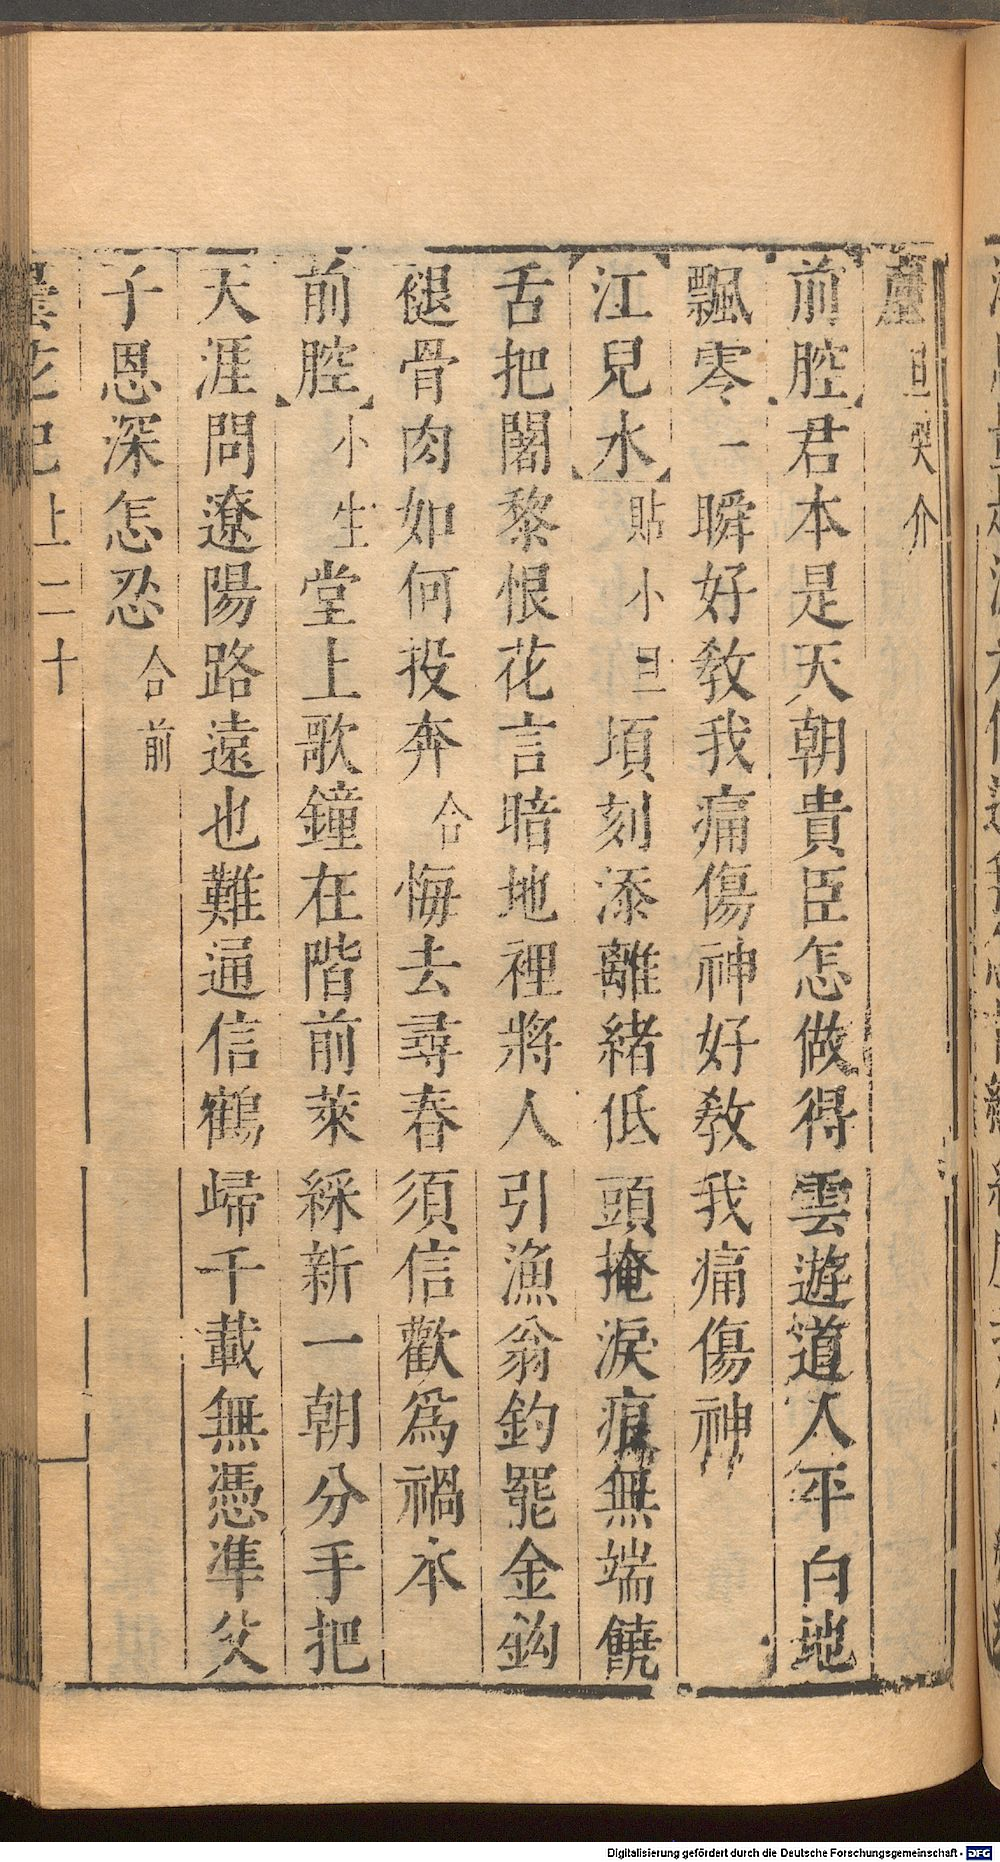 蘆旦哭介
前腔君本是天朝貴臣怎做得雲遊道人平白地
飄零一瞬好教我痛傷神好教我痛傷神
江兒水貼小旦頃刻添離緒低頭掩淚痕無端饒
舌把闍黎恨花言暗地裡將人引漁翁釣罷金鈎
褪骨肉如何投奔合悔去尋春須信歡爲禍本
前腔小生堂上歌鐘在階前萊綵新一朝分手把
天涯問遼陽路遠也難通信鶴歸千載無憑準父
子恩深怎忍合前
曇花記上二十
Digitalisierung gefördert durch die Deutsche Forschungsgemeinschaft - DFG